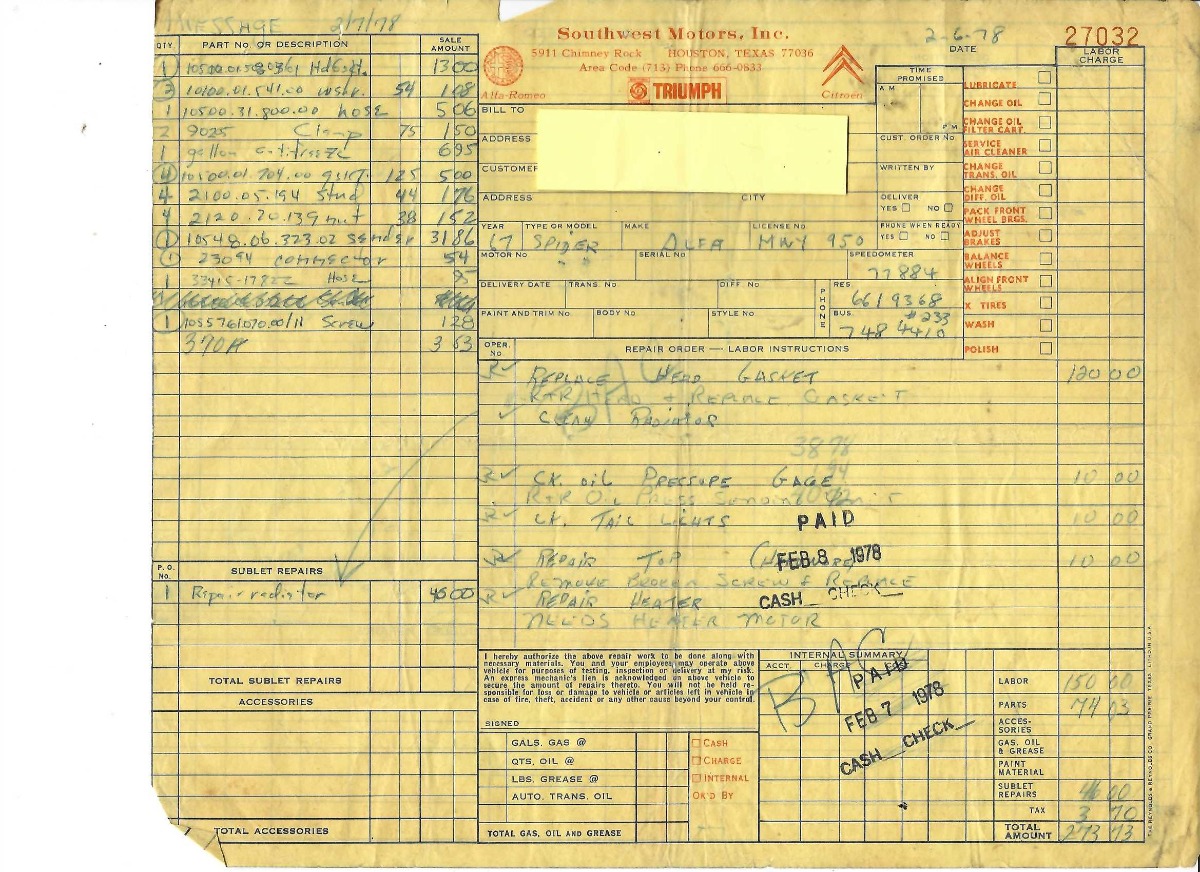 MESSAGE 2/7/78
QTY. PART No. OR DESCRIPTION SALE AMOUNT
1 Hd Gskt. 13 00
2 10100.01.541.00 wshr. 54 1 08
1 10500.31.800.00 hose 5 06
2 9025 Clamp 75 1 50
1 gallon antifreeze 6 95
4 10500.01.704.00 gskt. 125 5 00
4 2100.05.194 Stud 44 1 76
4 2120.20.139 nut 38 1 52
1 10548.06.323.02 Sender 31 86
1 23094 connector 54
1 33415-17822 Hose 95
1 Screw 1 28
370A 3 53
P.O. No. SUBLET REPAIRS
1 Repair radiator 46 00
TOTAL SUBLET REPAIRS
ACCESSORIES
TOTAL ACCESSORIES
Southwest Motors, Inc.
5911 Chimney Rock HOUSTON, TEXAS 77036
Area Code (713) Phone 666-0833
Alfa-Romeo TRIUMPH Citroën
2-6-78
DATE
27032
LABOR CHARGE
TIME PROMISED
A M
P M
BILL TO
ADDRESS
CUST. ORDER No.
CUSTOMER
WRITTEN BY
ADDRESS CITY
DELIVER
YES NO
YEAR TYPE OR MODEL MAKE LICENSE No
PHONE WHEN READY
YES NO
67 SPIDER ALFA MWY 950
MOTOR No. " " SERIAL No. SPEEDOMETER
77884
DELIVERY DATE TRANS. No. DIFF. No
PHONE
RES. 661 9368
PAINT AND TRIM No. BODY No STYLE No
BUS. #233
748 4410
LUBRICATE
CHANGE OIL
CHANGE OIL FILTER CART.
SERVICE AIR CLEANER
CHANGE TRANS. OIL
CHANGE DIFF. OIL
PACK FRONT WHEEL BRGS.
ADJUST BRAKES
BALANCE WHEELS
ALIGN FRONT WHEELS
X TIRES
WASH
POLISH
OPER. No. REPAIR ORDER — LABOR INSTRUCTIONS
R REPLACE HEAD GASKET 120 00
R+R HEAD + REPLACE GASKET
CLEAN RADIATOR
38 78
R CK. OIL PRESSURE GAGE 10 00
R+R OIL PRESS SENDING UNIT
R CK. TAIL LIGHTS 10 00
PAID
FEB 8 1978
CASH CHECK
R REPAIR TOP (HARDWARE) 10 00
REMOVE BROKEN SCREW & REPLACE
R REPAIR HEATER
NEEDS HEATER MOTOR
I hereby authorize the above repair work to be done along with
necessary materials. You and your employees may operate above
vehicle for purposes of testing, inspection or delivery at my risk.
An express mechanic's lien is acknowledged on above vehicle to
secure the amount of repairs thereto. You will not be held re-
sponsible for loss or damage to vehicle or articles left in vehicle in
case of fire, theft, accident or any other cause beyond your control.
SIGNED
GALS. GAS @
QTS. OIL @
LBS. GREASE @
AUTO. TRANS. OIL
TOTAL GAS, OIL AND GREASE
CASH
CHARGE
INTERNAL
OK'D BY
INTERNAL SUMMARY
ACCT. CHARGE
BAC
PAID
FEB 7 1978
CASH CHECK
LABOR 150 00
PARTS 74 03
ACCES-SORIES
GAS, OIL & GREASE
PAINT MATERIAL
SUBLET REPAIRS 46 00
TAX 3 70
TOTAL AMOUNT 273 73